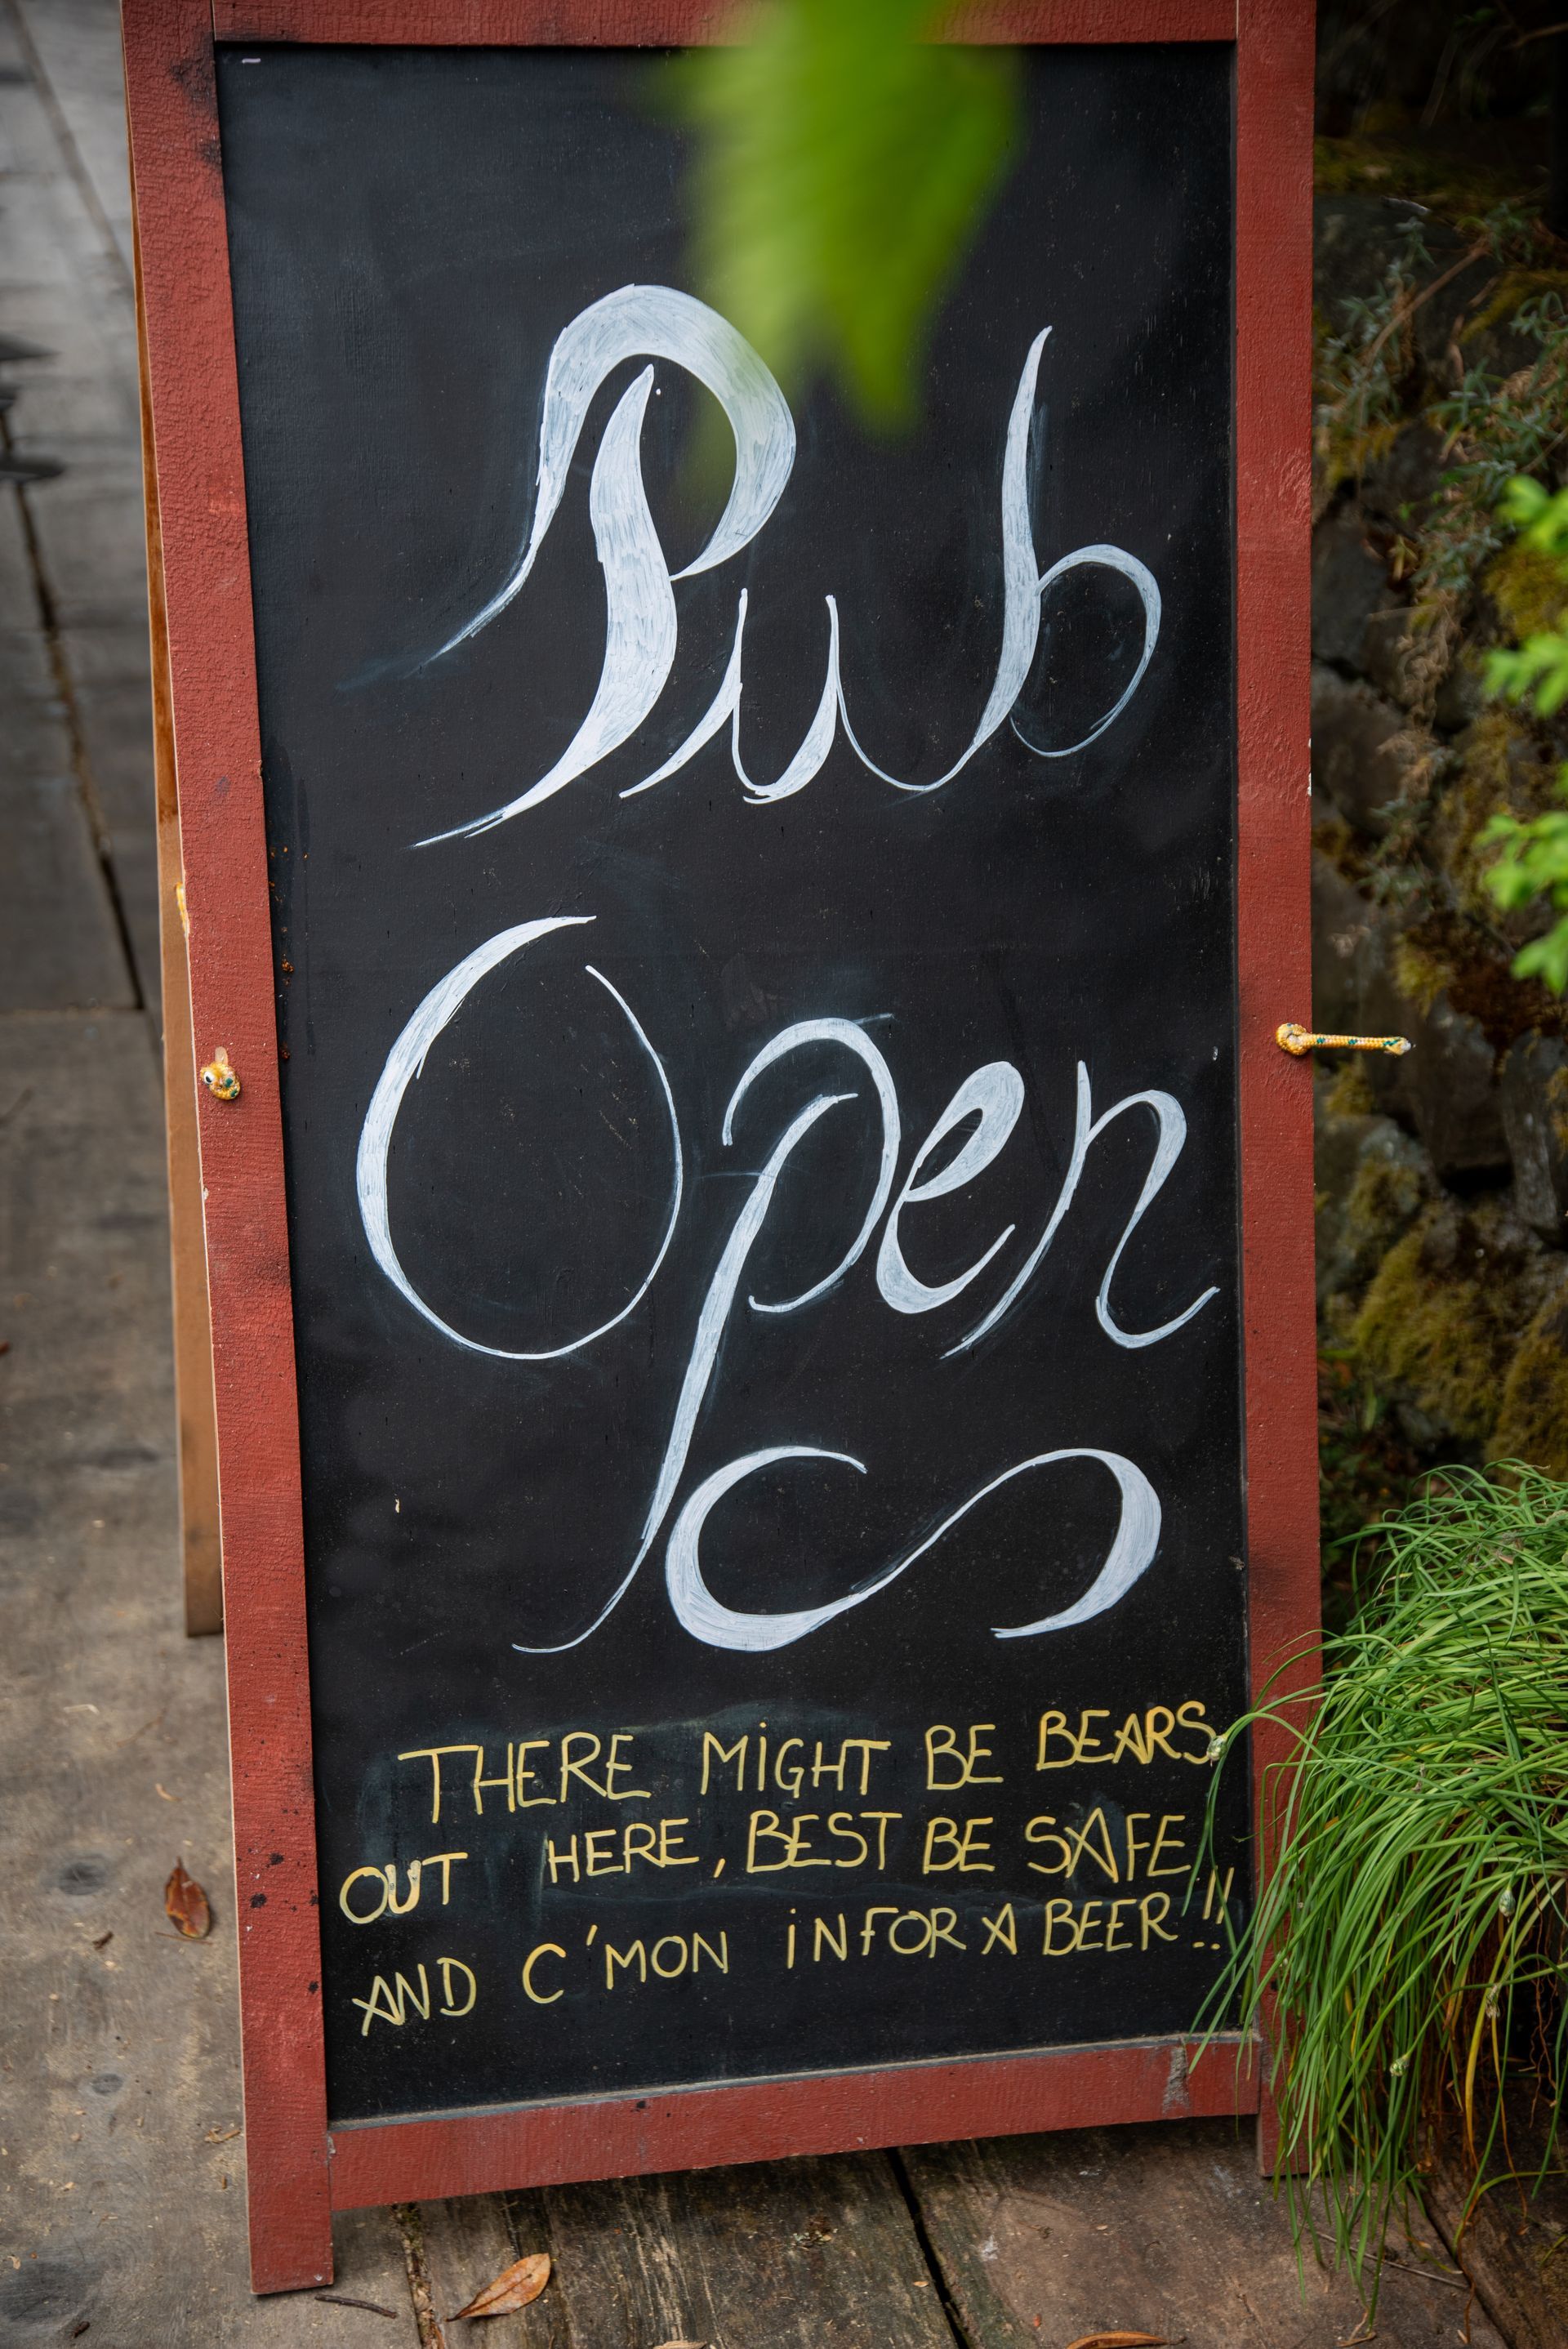 Pub
Open
THERE MIGHT BE BEARS
OUT HERE, BEST BE SAFE
AND C'MON IN FOR A BEER!!